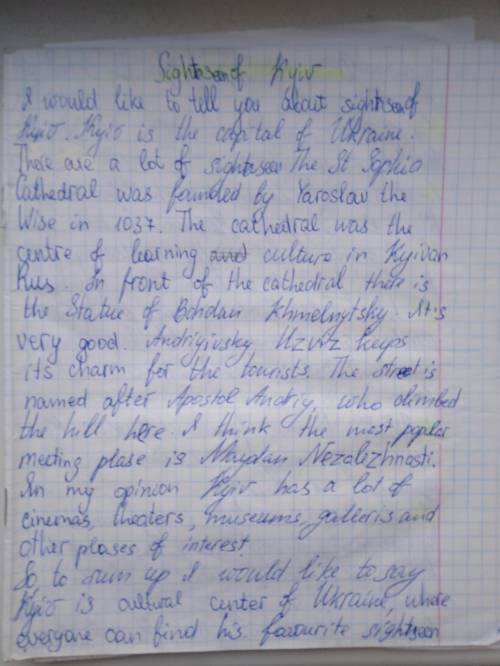 Sightseen of Kyiv
I would like to tell you about sightseen of
Kyiv. Kyiv is the capital of Ukraine.
There are a lot of sightseen The St Sophia
Cathedral was founded by Yaroslav the
Wise in 1037. The cathedral was the
centre of learning and culture in Kyivan
Rus. In front of the cathedral there is
the Statue of Bohdan Khmelnytsky. It's
very good. Andriyivsky Uzviz keeps
its charm for the tourists. The street is
named after Apostol Andriy, who climbed
the hill here. I think the most popular
meeting plase is Maydan Nezalezhnasti.
In my opinion Kyiv has a lot of
cinemas, theaters, museums, galleris and
other plases of interest.
So to sum up I would like to say
Kyiv is cultural center of Ukraine, whose
everyone can find his favourite sightseen